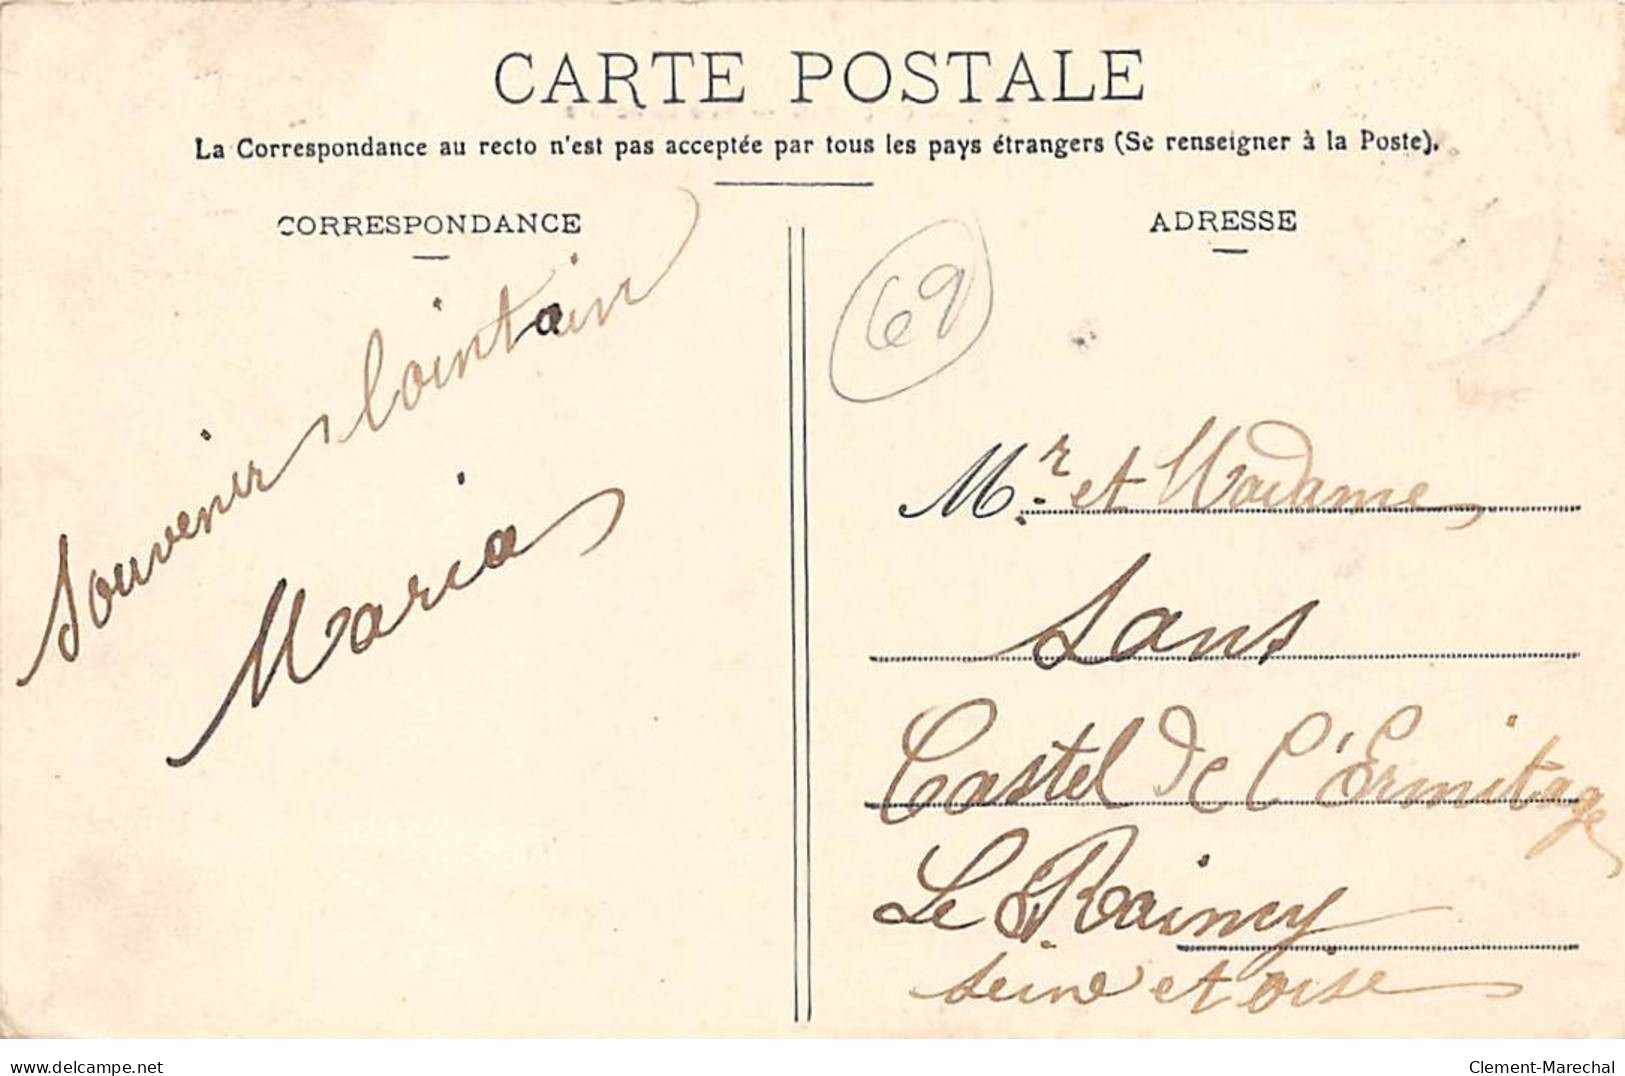 CARTE POSTALE
La Correspondance au recto n'est pas acceptée par tous les pays étrangers (Se renseigner à la Poste).
CORRESPONDANCE
Souvenir lointain
Maria
ADRESSE
69
Mr. et Madame
Sans
Castel de l'Ermitage
Le Raincy
Seine et Oise
delcampe.net
Clement-Marechal